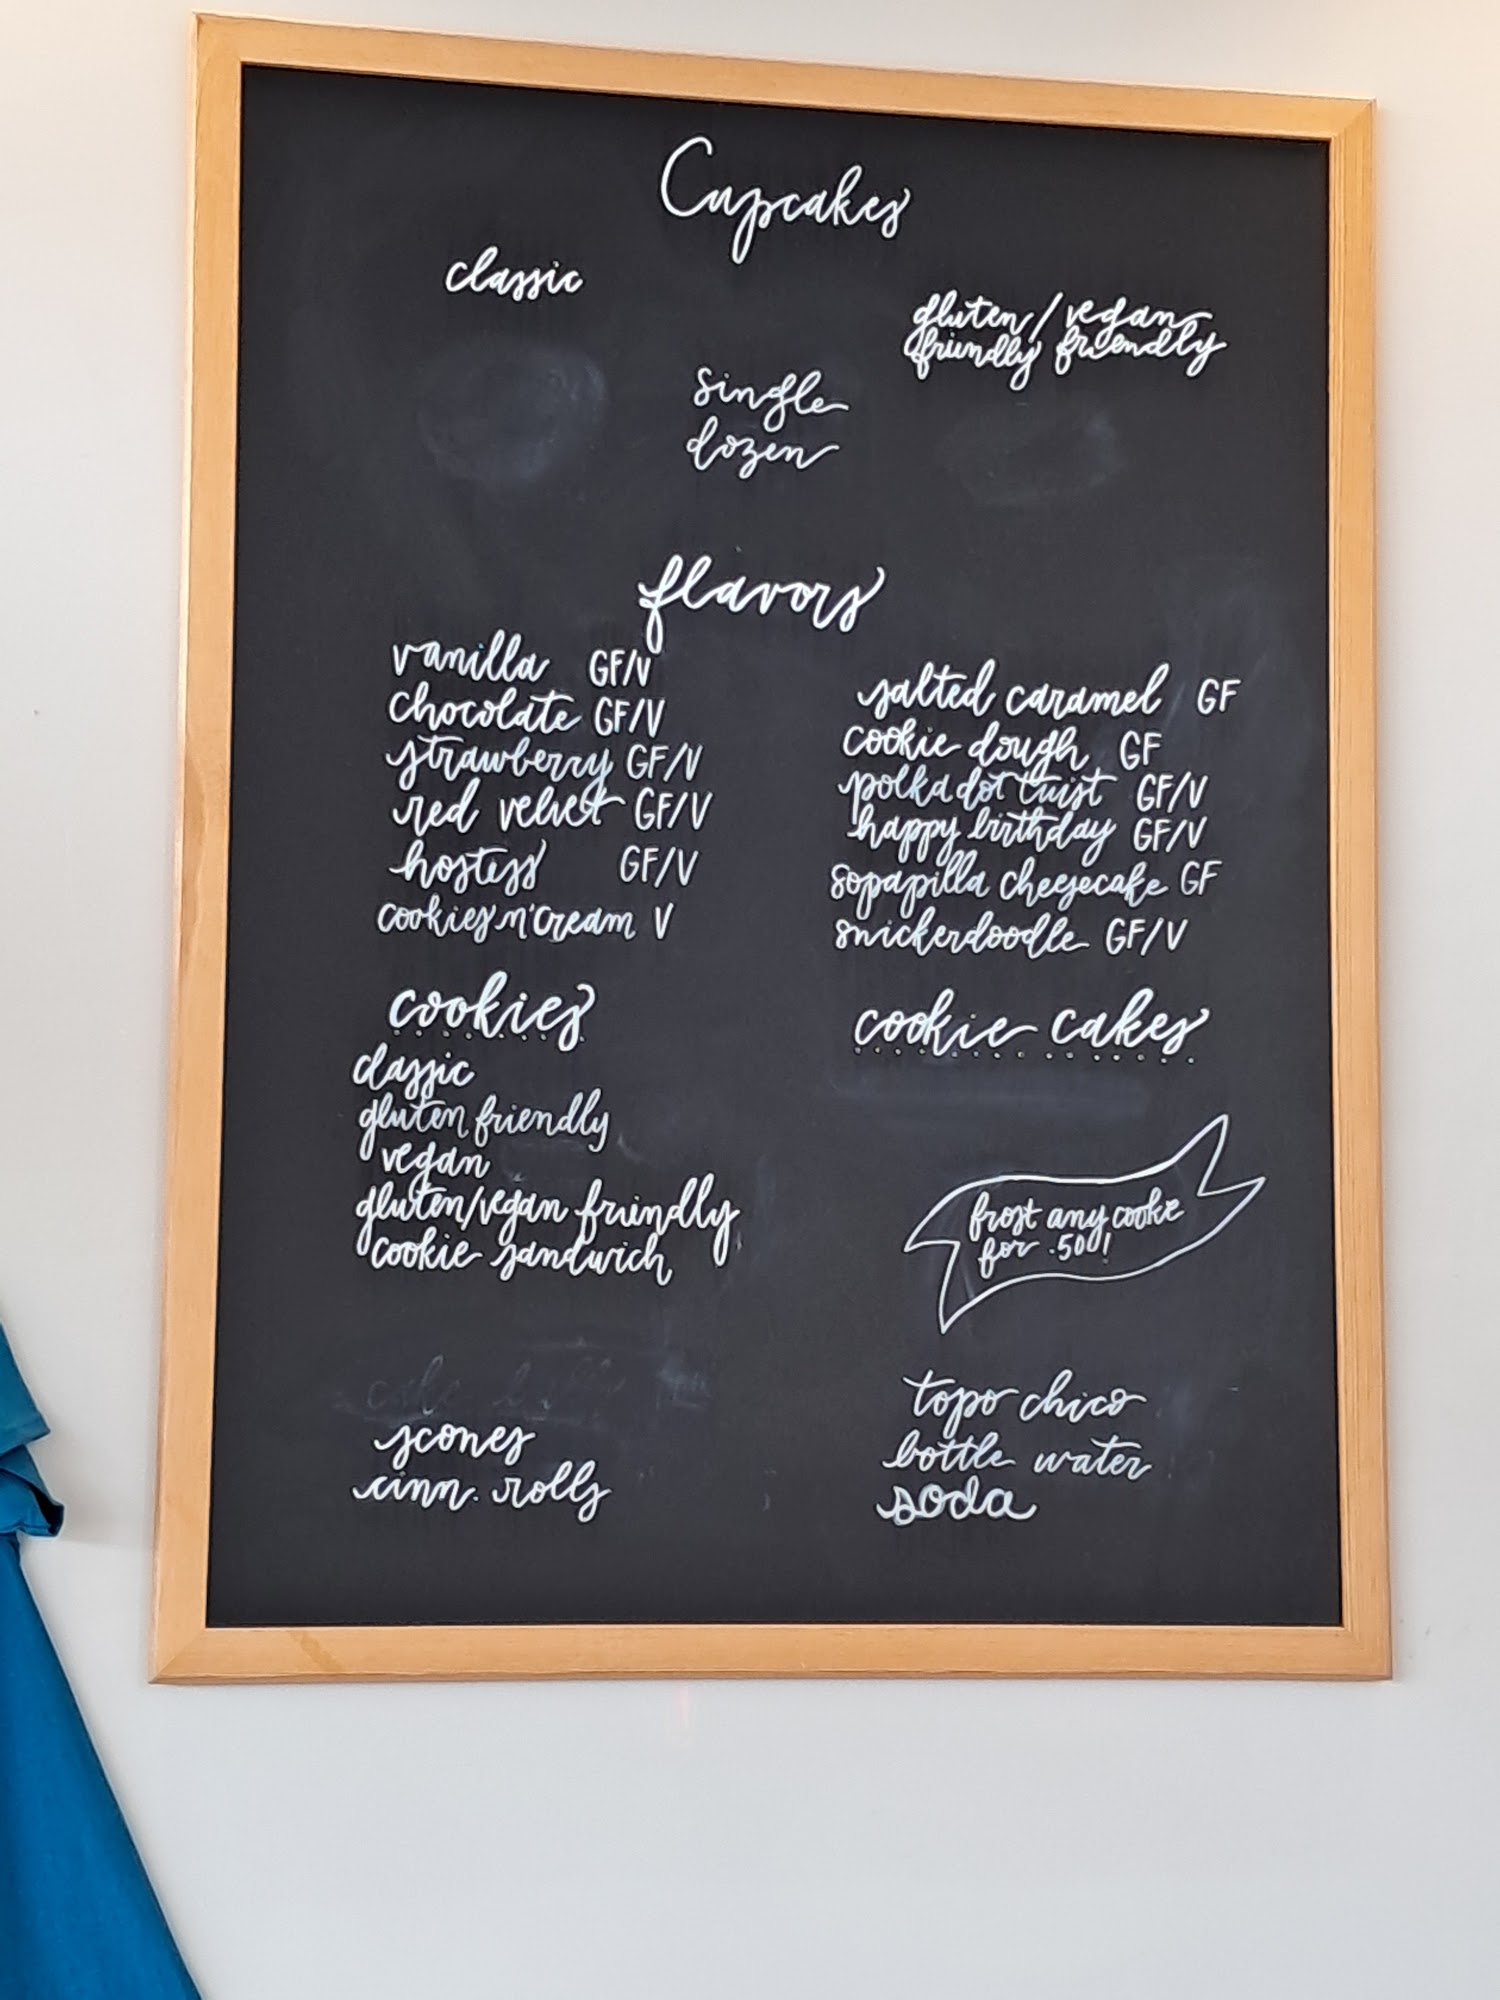 Cupcakes
classic
gluten/vegan
friendly friendly
single
dozen
flavors
vanilla GF/V
chocolate GF/V
strawberry GF/V
red velvet GF/V
hostess GF/V
cookies n' cream V
salted caramel GF
cookie dough GF
polkadot twist GF/V
happy birthday GF/V
sopapilla cheesecake GF
snickerdoodle GF/V
cookies
classic
gluten friendly
vegan
gluten/vegan friendly
cookie sandwich
cookie cakes
frost any cookie
for .50!
scones
cinn. rolls
topo chico
bottle water
soda